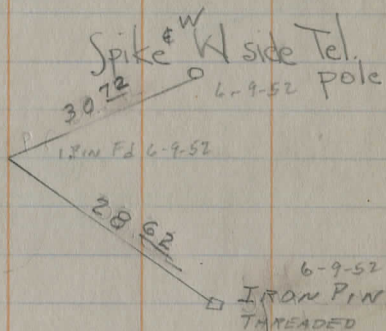 Spike & W side Tel.
pole
30.72
6-9-52
I.PIN Fd 6-9-52
28.62
6-9-52
IRON PIN
THREADED